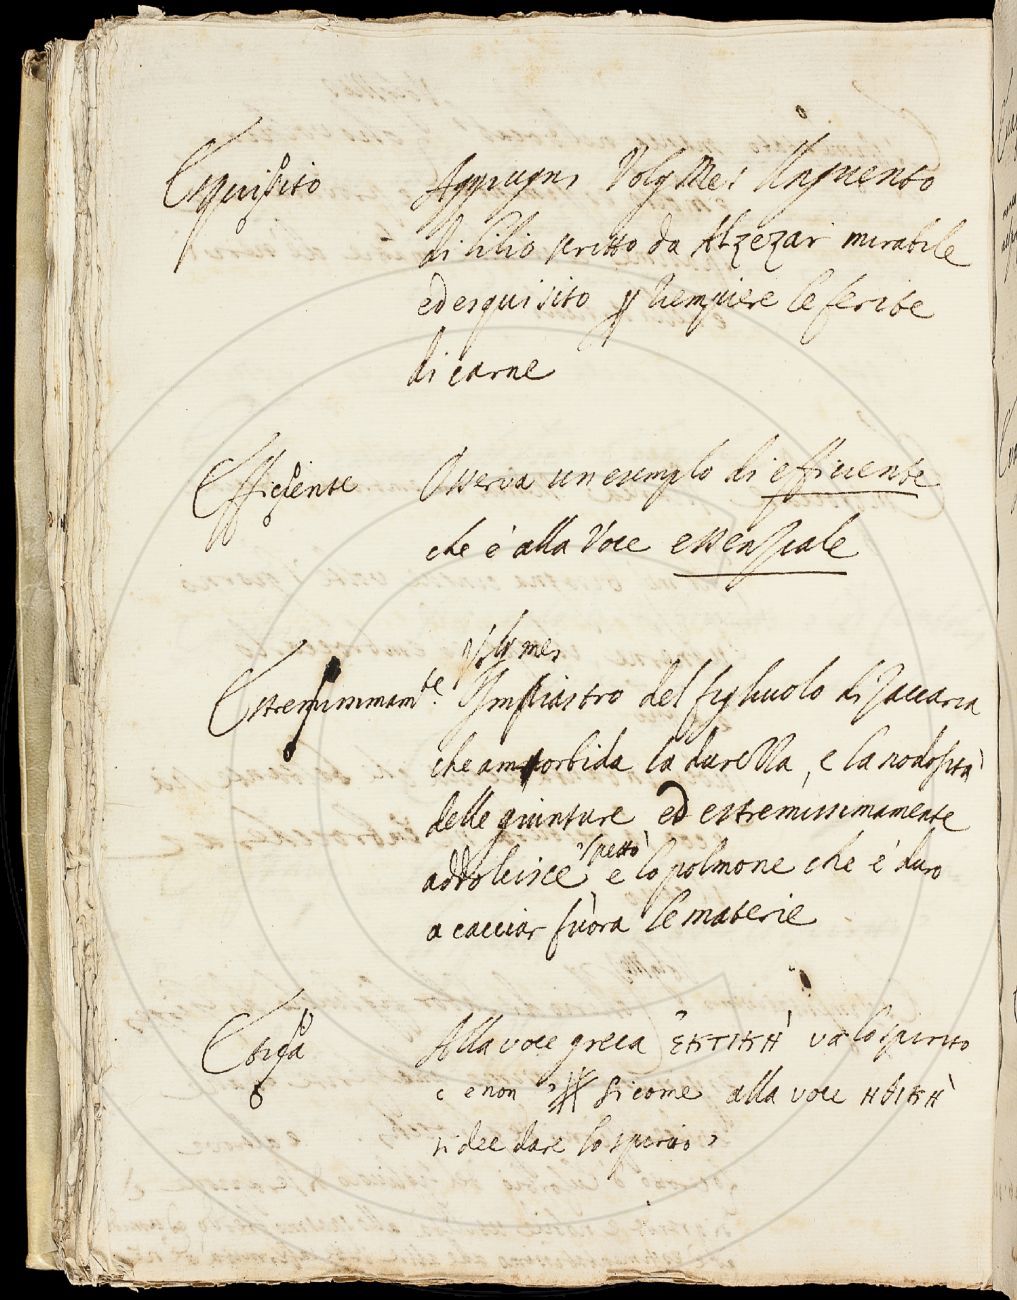 Esquisito Aggiugni Volg. Mes. Unguento
di lilio scritto da Alzezar mirabile
ed esquisito p riempiere le ferite
di carne
Efficiente Osserva un esemplo di efficiente
che è alla Voce essenziale
Vol. mes.
Estremissimamte. Impiastro del figliuolo di Zaccaria
che ammorbida la durezza, e la nodosità
delle giunture ed estremissimamente
addolcisce 'l petto e lo polmone che è duro
a cacciar fuora le materie
Etiga Alla voce greca ἑκτικὴ va lo spirito
c e non ’ si come alla voce ηθικὴ
si dee dare lo spirito ’